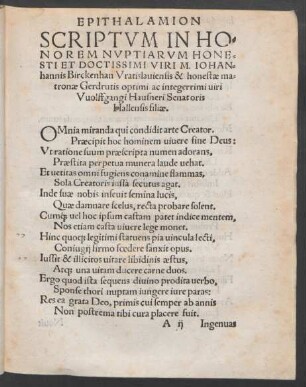 EPITHALAMION
SCRIPTVM IN HO-
NOREM NVPTIARVM HONE-
STI ET DOCTISSIMI VIRI M. IOHAN
hannis Birckenhan Vratislauiensis & honestæ ma
tronæ Gerdrutis optimi ac integerrimi uiri
Vuolffgangi Hausneri Senatoris
Hallensis filiæ.
OMnia miranda qui condidit arte Creator.
Præcipit hoc hominem uiuere fine Deus:
Vt ratione suum præscripta numen adorans,
Præstita perpetua munera laude uehat.
Et uetitas omni fugiens conamine flammas,
Sola Creatoris iussa secutus agat.
Inde suæ nobis inseuit semina lucis,
Quæ damnare scelus, recta probare solent.
Cumq́; uel hoc ipsum castam patet indice mentem,
Nos etiam casta uiuere lege monet.
Hincq́; legitimi statuens pia uincula lecti,
Coniugij firmo fœdere sanxit opus.
Iussit & illicitos uitare libidinis æstus,
Atq́; una uitam ducere carne duos.
Ergo quod ista sequens diuino prodita uerbo,
Sponse thori nuptam iungere iure paras:
Res ea grata Deo, primis cui semper ab annis
Non postrema tibi cura placere fuit.
A ij Ingenuas